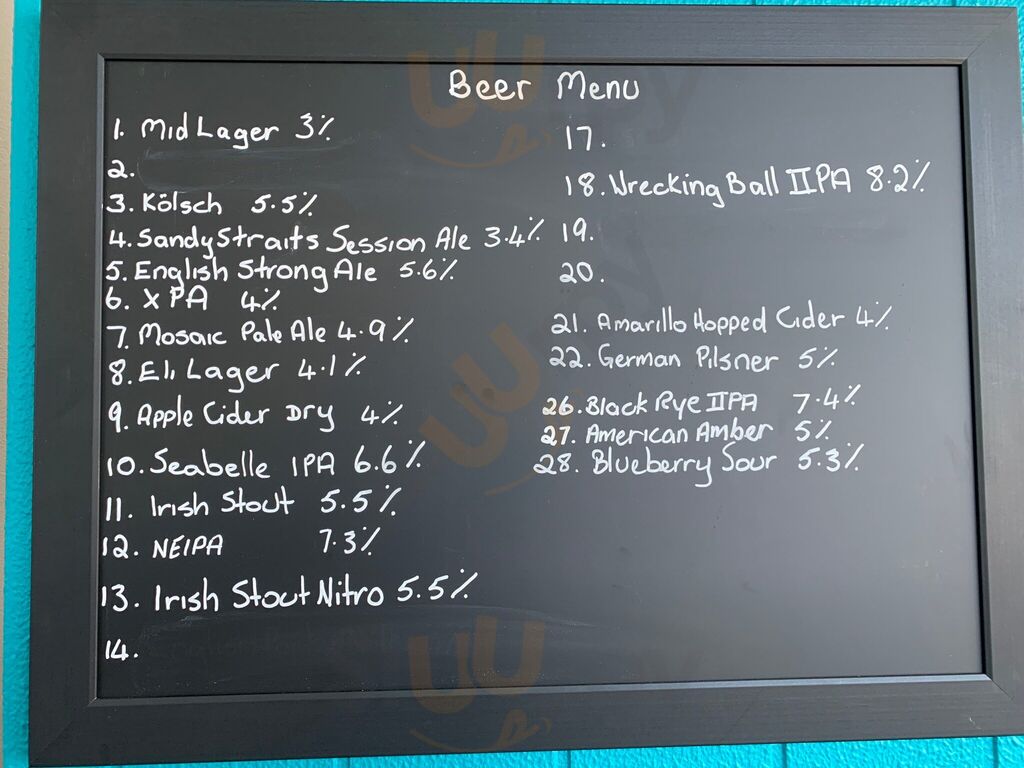 Beer Menu
1. Mid Lager 3%
2.
3. Kölsch 5.5%
4. Sandy Straits Session Ale 3.4%
5. English Strong Ale 5.6%
6. XPA 4%
7. Mosaic Pale Ale 4.9%
8. Eli Lager 4.1%
9. Apple Cider Dry 4%
10. Seabelle IPA 6.6%
11. Irish Stout 5.5%
12. NEIPA 7.3%
13. Irish Stout Nitro 5.5%
14.
17.
18. Wrecking Ball IIPA 8.2%
19.
20.
21. Amarillo Hopped Cider 4%
22. German Pilsner 5%
26. Black Rye IIPA 7.4%
27. American Amber 5%
28. Blueberry Sour 5.3%